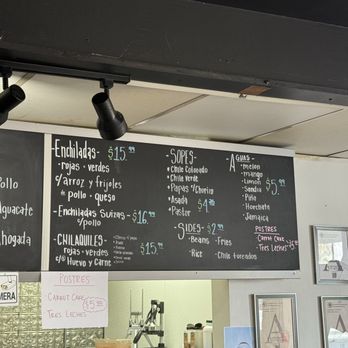 Pollo
Aguacate
Ahogada
-Enchiladas- $15.99
-rojas-verdes
c/arroz y frijoles
*pollo-queso
-Enchiladas Suizas $16.99
c/pollo
-CHILAQUILES-
rojas-verdes $15.99
c/ Huevo y Carne
-SOPES-
*Chile Colorado
*Chile Verde
*Papas c/Chorizo
Asada $4.99
*Pastor
-SIDES- $2.99
-Beans -Fries
-Rice -Chile toreados
-AGUAS-
•melon
•mango
•Limon $5.99
•Sandia
•Piña
•Horchata
•Jamaica
POSTRES
Carrot Cake $5.95
Tres Leches
POSTRES
CARROT CAKE $5.95
TRES LECHES
MERA
A
A